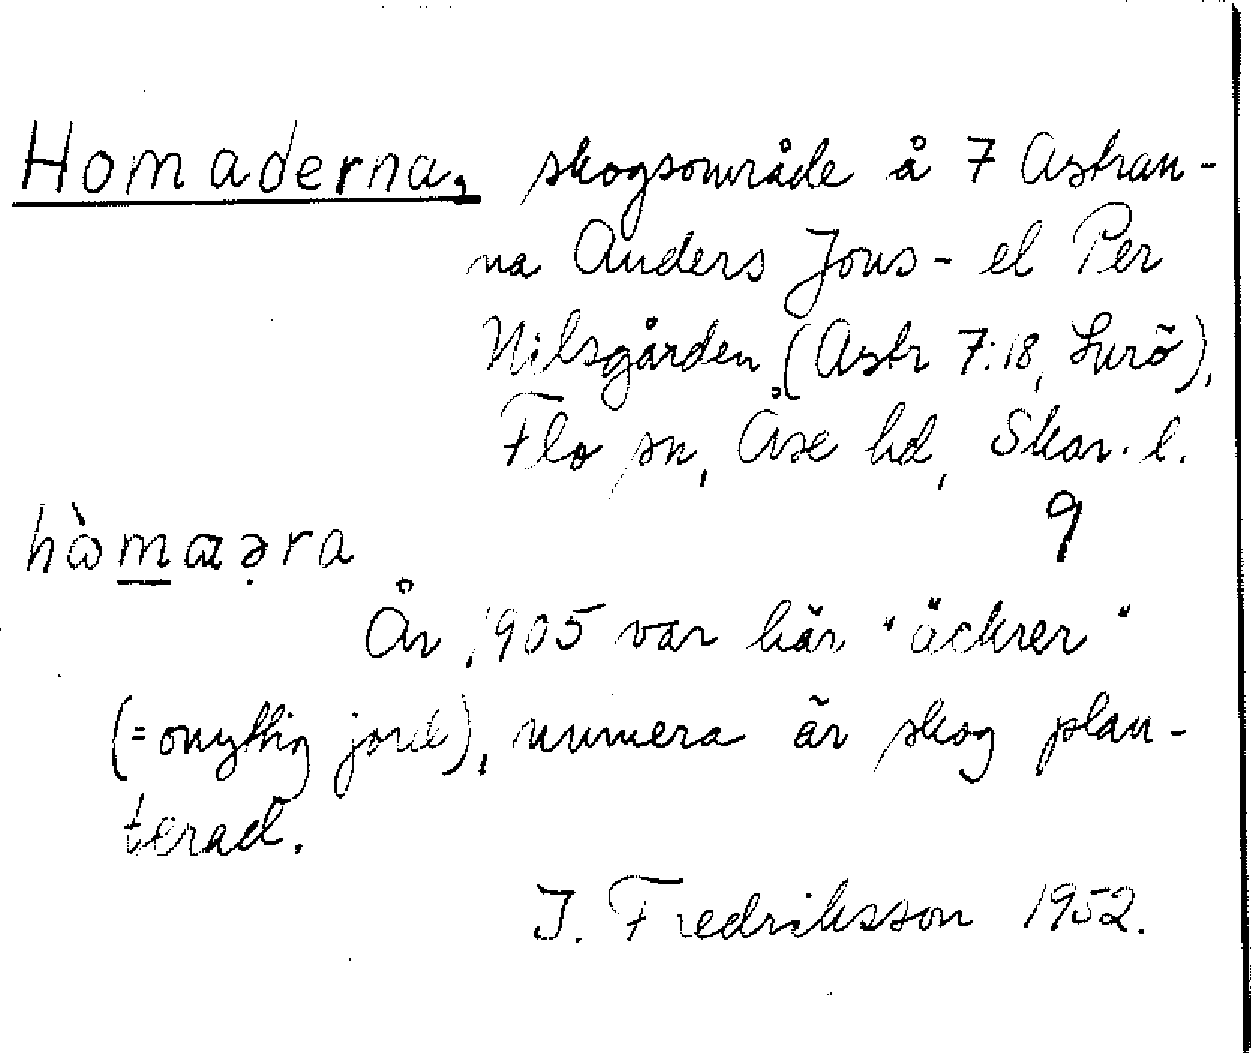 Homaderna, skogsområde å 7 Astran-
na Anders Jons- el Per
Nilsgården (Astr 7:18, Lurö),
Flo sn, Åse hd, Skar. l.
9
hὼmaəra
År 1905 var här "äckrer"
(=onyttig jord), numera är skog plan-
terad.
J. Fredriksson 1952.